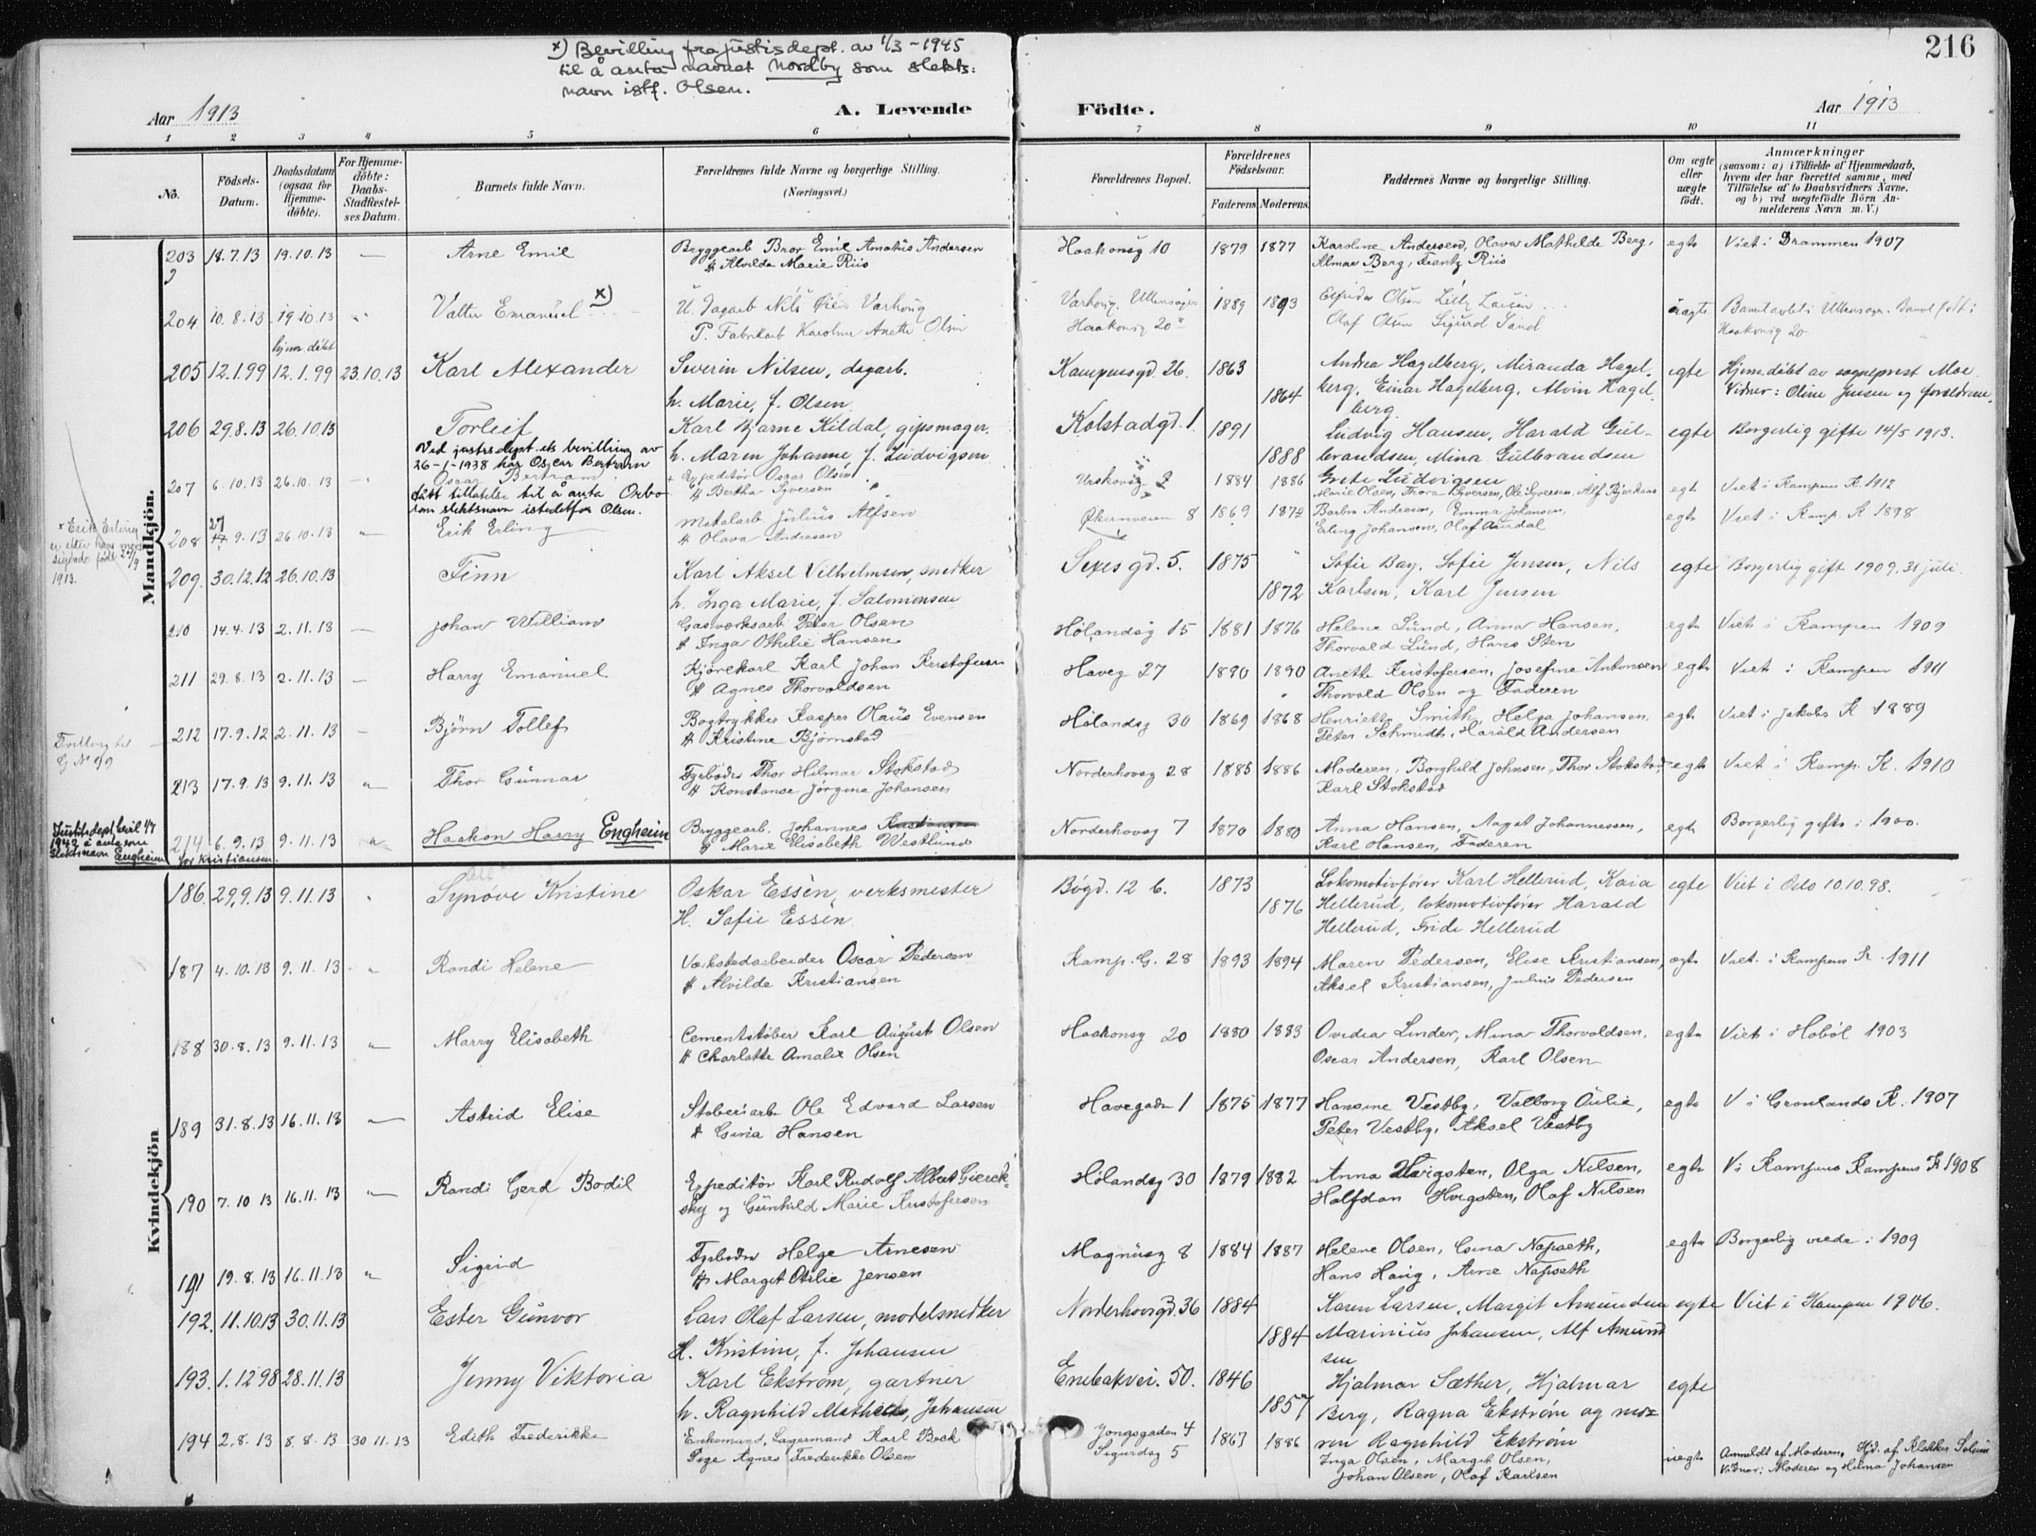 x) Bevilling fra Justisdept. av 1/3-1945
til å anta navnet Nordby som slekts-
navn istf. Olsen.
216
Aar 1913 A. Levende Födte. Aar 1913
1 2 3 4 5 6 7 8 9 10 11
No.
Födsels-Datum.
Daabsdatum (ogsaa for Hjemme-döbte).
For Hjemme-döbte: Daabs-Stadfæstel-ses Datum.
Barnets fulde Navn.
Forældrenes fulde Navne og borgerlige Stilling. (Næringsvei.)
Forældrenes Bopæl.
Forældrenes Födselsaar. Faderens Moderens
Faddernes Navne og borgerlige Stilling.
Om ægte eller uægte födt.
Anmærkninger (saasom: a) i Tilfælde af Hjemmedaab, hvem der har forrettet samme, med Tilföielse af to Daabsvidners Navne. og b) ved uægtefödte Börn An-melderens Navn m. V.)
Mandkjön.
203 18.7.13 19.10.13 — Arne Emil Bryggearb Bror Emil Amatius Andersen Haakonsg 10 1879 1877 Karoline Andersen, Olava Mathilde Berg, egte Viet i Drammen 1907
H Alvilda Marie Riis Almar Berg, Frantz Riis
204 10.8.13 19.10.13 Valter Emanuel x) U. Dagarb Nils Varhoug Varhoug, Ullensager 1889 1893 Olsen Lilly Larsen uægte
P. Fabrikarb Karoline Anette Olsen Haakonsg 20 Olaf Olsen Sigurd Sand Haakonsg 20
hjem. døbt
205 12.1.99 12.1.99 23.10.13 Karl Alexander Severin Nilsen, dagarb. Kampensgd. 26. 1863 Andrea Hagelberg, Miranda Hagel- egte Hjemdøbt av sogneprest Moe.
h. Marie, f. Olsen 1864 berg, Einar Hagelberg, Alvin Hagel- Vidner: Oline Jensen og forældrene.
berg.
206 29.8.13 26.10.13 Torleif Karl Bjarne Kildal, gipsmager. Kolstadgd. 1. 1891 Ludvig Hansen, Harald Gul- egte Borgerlig gifte 14/5 1913.
h. Maren Johanne f. Ludvigsen 1888 brandsen, Mina Gulbrandsen
Grete Ludvigsen
Ved justisdept.ets bevilling av
26-1-1938 har Oscar Bertram
fått tillatelse til å anta Orbo
som slektsnavn istedetfor Olsen.
207 6.10.13 26.10.13 Oscar Bertram Expeditør Oscar Olsen Urskovsg 2 1884 1886 Marie Olsen, Thora Syversen, Ole Syversen, Alf Bjerkaas egte Viet i Kampens K. 1912
H Bertha Syversen
208 27 9.13 26.10.13 Erik Erling Metalarb Julius Alfsen Økernveien 8 1869 1872 Barbra Andresen, Emma Johansen, egte Viet i Kamp. K 1898
H Olava Andresen Erling Johansen, Olaf Aurdal
x Erik Erling
er efter hans mors
sigende født 27/9
1913.
209. 30.12.12 26.10.13 Finn Karl Aksel Vilhelmsen, snedker Sexesgd. 5. 1875 Sofie Bay, Sofie Jensen, Nils egte Borgerlig gift 1909. 31 juli.
h. Inga Marie, f. Salomonsen 1872 Karlsen, Karl Jensen
210 14.4.13 2.11.13 — Johan William Gasværksarb Peter Olsen Hølandsg 15 1881 1876 Helene Lund, Anna Hansen, egte Viet i Kampen 1909
H Inga Othilie Hansen Thorvald Lund, Hans Sten
211 29.8.13 2.11.13 — Harry Emanuel Kjørekarl Karl Johan Kristofersen Haveg 27 1890 1890 Anette Kristofersen, Josefine Antonsen egte Viet i Kampen 1911
H Agnes Thorvaldsen Thorvald Olsen og Faderen
212 17.9.12 2.11.13 — Bjørn Tollef Bogtrykker Kasper Olaus Evensen Hølandsg 30 1869 1868 Henriette Smith, Helga Johansen. egte Viet i Jakobs K 1889
H Kristine Bjørnstad Peter Schmidt, Harald Andersen
Tvilling til
213 17.9.13 9.11.13 „ Thor Gunnar Fyrbøder Thor Hilmar Stokstad Norderhovsg 28 1885 1886 Moderen, Borghild Johnsen, Thor Stokstad, egte Viet i Kamp. K. 1910
H Konstanse Jørgine Johansen Karl Stokstad
Justisdept. bevil 1/7
1942 å anta som
Slektsnavn Engheim
for Kristiansen.
214 6.9.13 9.11.13 „ Haakon Harry Engheim Bryggearb. Johannes Kristiansen Norderhovsg 7 1870 1880 Anna Hansen, Aagot Johannessen, egte Borgerlig gifte i 1900.
H Marie Elisabeth Westlund Karl Hansen, Faderen
Kvindekjön
186. 29.9.13 9.11.13 „ Synøve Kristine Oskar Essèn, verksmester Bøgd. 12 b. 1873 Lokomotivfører Karl Hellerud, Kaia egte Viet i Oslo 10.10.98.
H. Sofie Essèn. 1876 Hellerud, lokomotivfører Harald
Hellerud, Frida Hellerud
187 4.10.13 9.11.13 „ Randi Helene Værkstedarbeider Oscar Pedersen Kamp. G. 28 1893 1894 Maren Pedersen, Elise Kristiansen, egte Viet i Kampens K. 1911
H Alvilde Kristiansen Aksel Kristiansen, Julius Pedersen
188 30.8.13 9.11.13 „ Marry Elisabeth Cementstøber Karl August Olsen Haakonsg 20 1880 1883 Ovidia Linder, Mina Thorvaldsen, egte Viet i Hobøl 1903
H Charlotte Amalie Olsen Oscar Andersen, Karl Olsen
189 31.8.13 16.11.13 „ Astrid Elise Støberiarb Ole Edvard Larsen Havegaden 1 1875 1877 Hansine Vestby, Valborg Aulie, egte V i Grønlands K. 1907
H Gina Hansen Peter Vestby, Aksel Vestby
190 7.10.13 16.11.13 „ Randi Gerd Bodil Expeditør Karl Rudolf Albert Gierck- Hølandsg 30 1879 1882 Anna Horgsten, Olga Nilsen, egte V i Kampens Kampens K 1908
sky og Gunhild Marie Kristofersen Halfdan Horgsten, Olaf Nilsen
191 19.8.13 16.11.13 „ Sigrid Fyrbøder Helge Arnesen Magnusg 8 1884 1887 Helene Olsen, Gina Napseth, egte Borgerlig viede i 1909
H Margit Otilie Jensen Hans Haug, Arne Napseth
192. 11.10.13 30.11.13 Ester Gunvor Lars Olaf Larsen, modelsnedker Norderhovsgd. 36 1884 Karen Larsen, Margit Amundsen egte Viet i Kampen 1906.
H. Kristine, f. Johansen 1884 Marinius Johansen, Alf Amund
sen
193. 1.12.98 28.11.13 Jenny Viktoria Karl Ekstrøm, gartner Enebakvei. 50. 1846 Hjalmar Sæther, Hjalmar egte
h. Ragnhild Mathilde, Johansen 1857 Berg, Ragna Ekstrøm og mo=
ren Ragnhild Ekstrøm
194 2.8.13 8.8.13 30.11.13 Edith Frederikke Enkemand, Lagermand Karl Beck Jongsgaden 4 1867 1886 Inga Olsen, Margit Olsen, uægte Anmeldt af Moderen. Hjd. af Klokker Solum
Pige Agnes Frederikke Olsen Sigurdsg 5 Johan Olsen, Olaf Karlsen Vidner: Moderen og Hilma Johansen